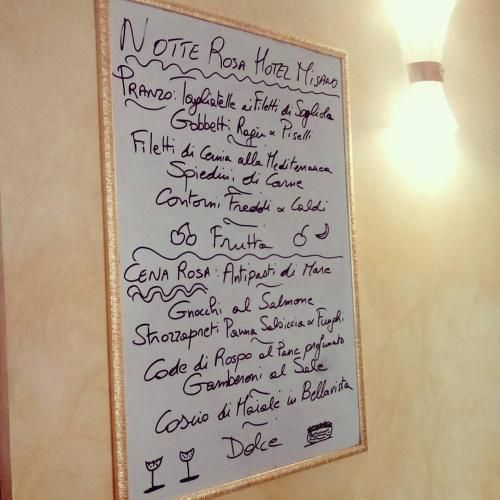 NOTTE ROSA HOTEL MISANO
PRANZO: Tagliatelle ai Filetti di Sogliola
Gobbetti Ragù e Piselli
Filetti di Cernia alla Mediterranea
Spiedini di Carne
Contorni Freddi e Caldi
Frutta
CENA ROSA: Antipasti di Mare
Gnocchi al Salmone
Strozzapreti Panna Salsiccia e Funghi
Code di Rospo al Pane profumato
Gamberoni al Sale
Coscio di Maiale in Bellavista
Dolce